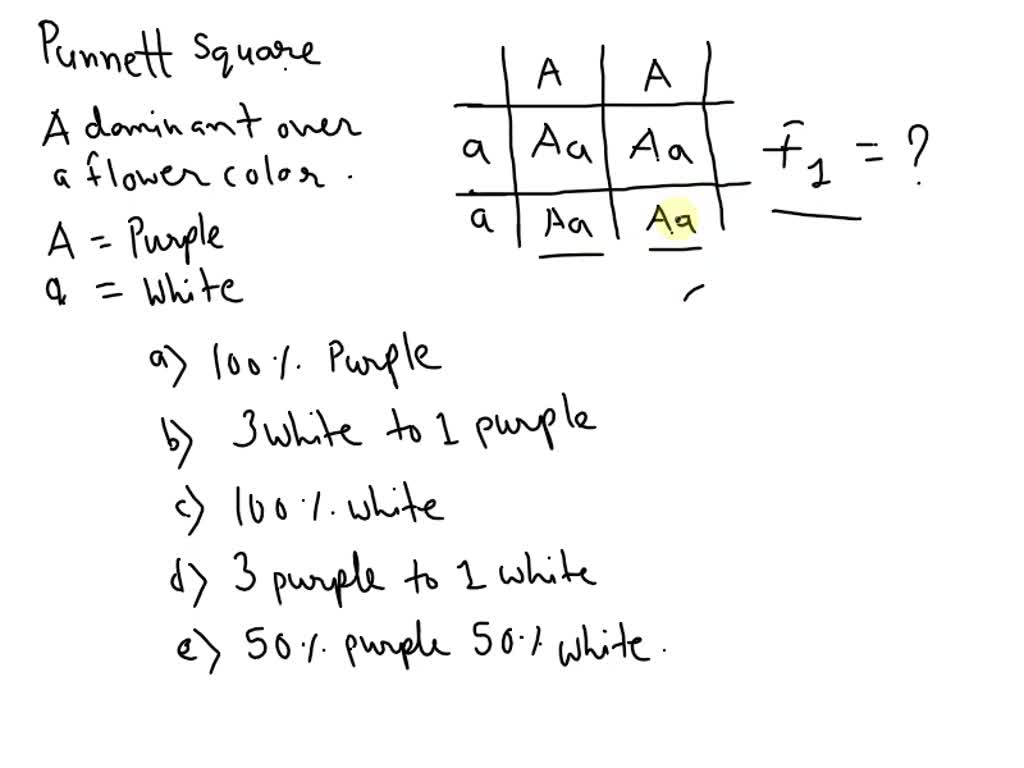 Punnett square
A dominant over
a flower color.
A = Purple
a = White
A A
a Aa Aa
a Aa Aa
F1 = ?
a) 100%. Purple
b) 3 white to 1 purple
c) 100%. white
d) 3 purple to 1 white
e) 50%. purple 50%. white.